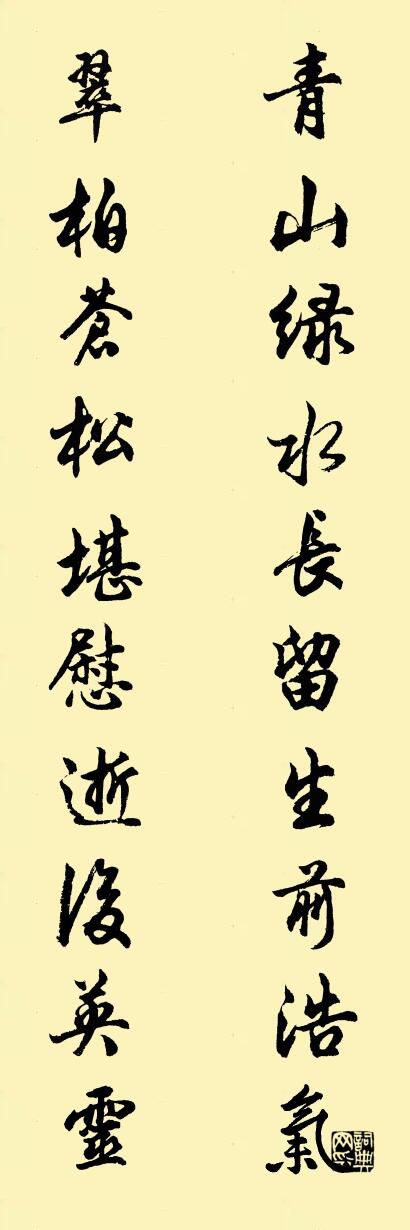 青山绿水長留生前浩氣
翠柏蒼松堪慰逝後英靈
詞典网印